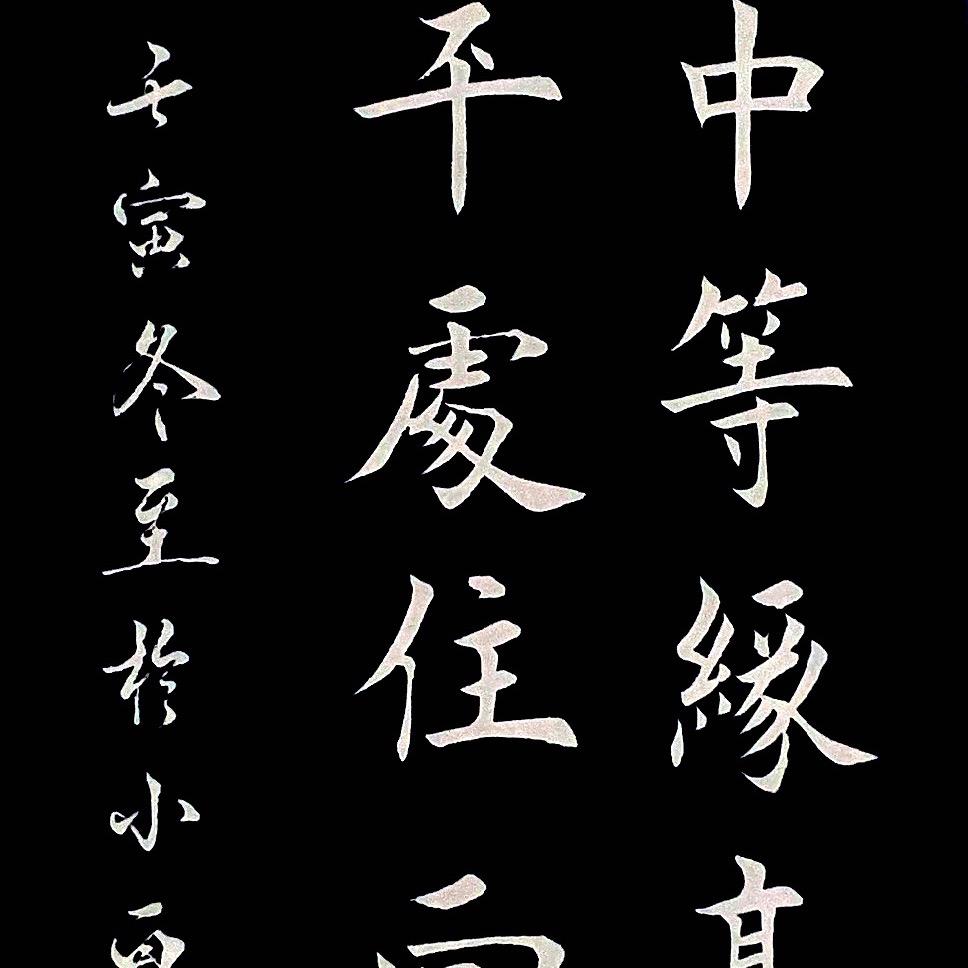 中等緣其
平處住而
壬寅冬至於小夏